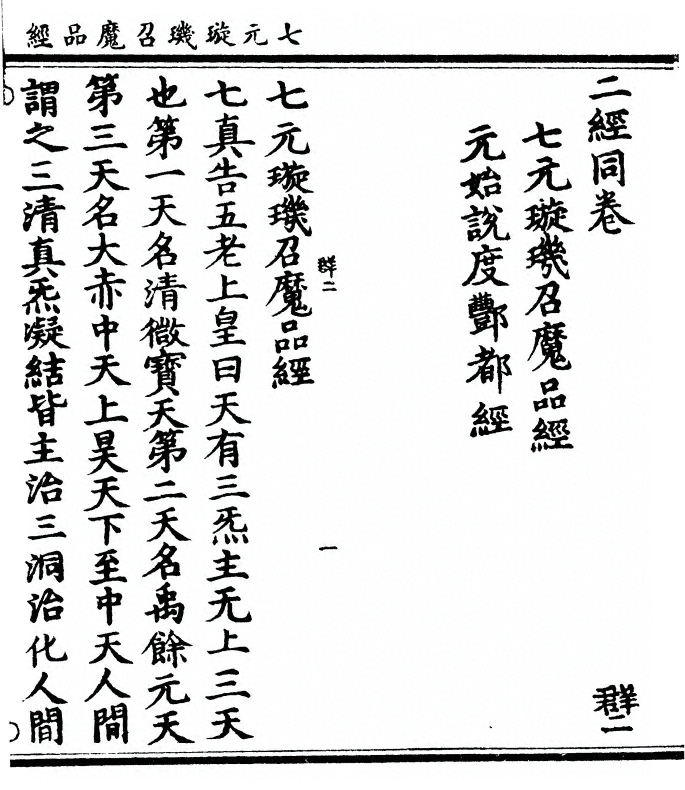 七元璇璣召魔品經
二經同卷
七元璇璣召魔品經
元始說度酆都經
群二
七元璇璣召魔品經
群二
一
七真告五老上皇曰天有三炁主无上三天
也第一天名清微寶天第二天名禹餘元天
第三天名大赤中天上昊天下至中天人間
謂之三清真炁凝結皆主治三洞治化人間